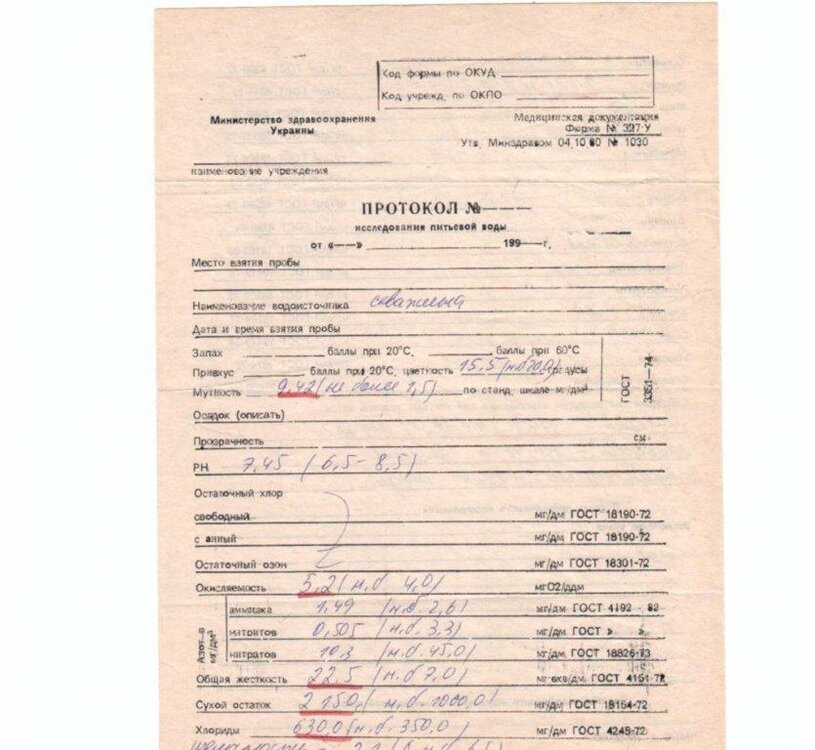 Код формы по ОКУД
Код учрежд. по ОКПО
Министерство здравоохранения
Украины
Медицинская документация
Форма № 327-У
Утв. Минздравом 04.10.80 № 1030
наименование учреждения
ПРОТОКОЛ №
исследования питьевой воды
от « » 199 г.
Место взятия пробы
Наименование водоисточника скважина
Дата и время взятия пробы
Запах баллы при 20°С, баллы при 60°С
Привкус баллы при 20°С, цветность 15,5 (н.б 20,0) градусы
Мутность 9,42 (не более 1,5) по станд. шкале мг/дм³
ГОСТ 3351—74
Осадок (описать)
Прозрачность см
РН 7,45 (6,5-8,5)
Остаточный хлор
свободный мг/дм ГОСТ 18190-72
с анный мг/дм ГОСТ 18190-72
Остаточный озон мг/дм ГОСТ 18301-72
Окисляемость 5,2 (н.б 4,0) мгО2/дм
Азот-в мг/дм³
аммиака 1,49 (н.б. 2,6) мг/дм ГОСТ 4192 - 82
нитритов 0,505 (н.б. 3,3) мг/дм ГОСТ » »
нитратов 10,3 (н.б. 45,0) мг/дм ГОСТ 18826-73
Общая жесткость 22,5 (н.б 7,0) мг-экв/дм, ГОСТ 4151-72
Сухой остаток 2150, (н.б. 1000,0) мг/дм ГОСТ 18164-72
Хлориды 630,0 (н.б. 350,0) мг/дм ГОСТ 4245-72